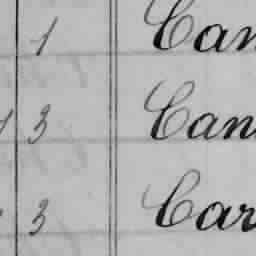 1 Can
3 Can
3 Car